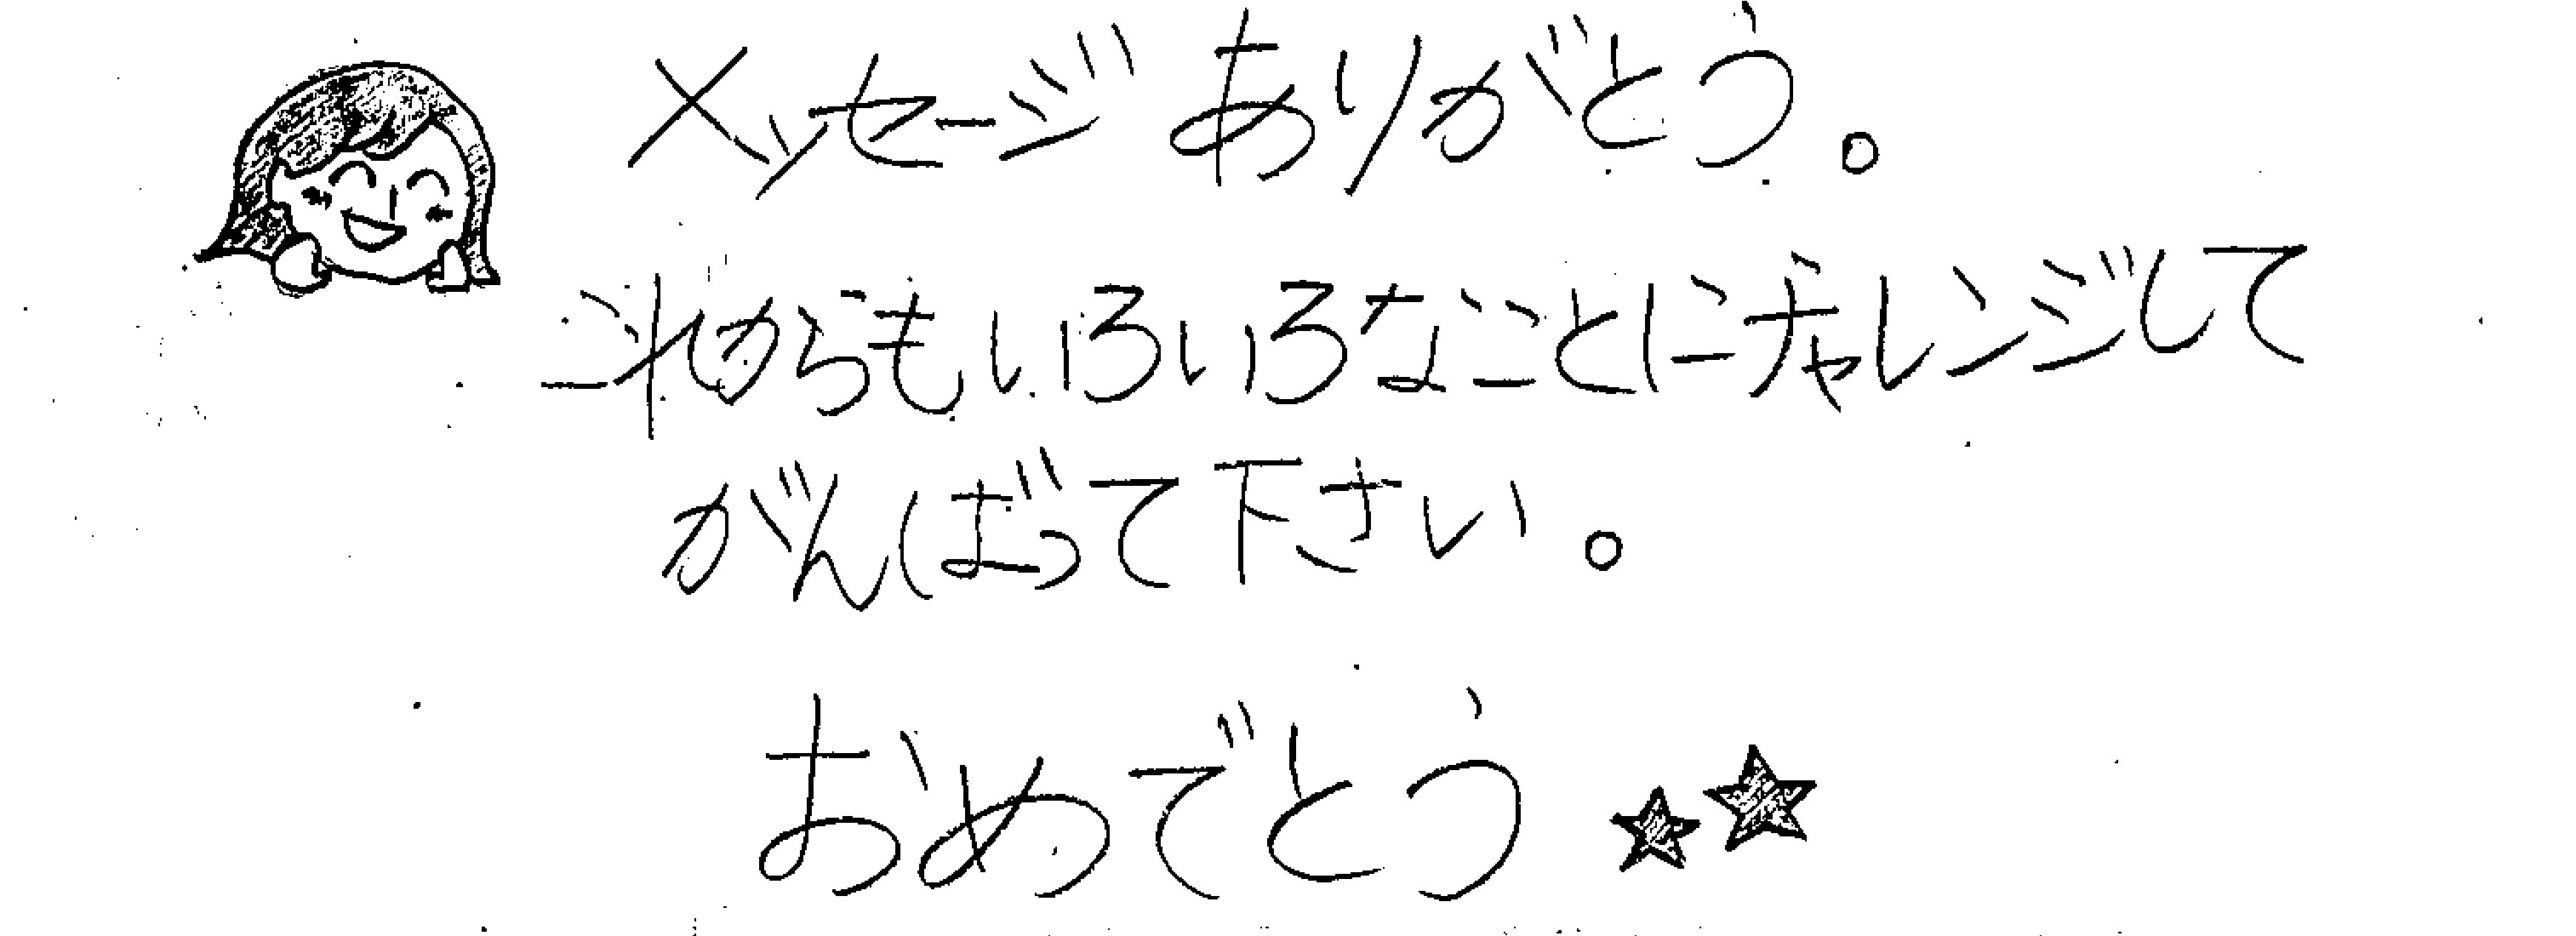 メッセージありがとう。
これからもいろいろなことにチャレンジして
がんばって下さい。
おめでとう★★